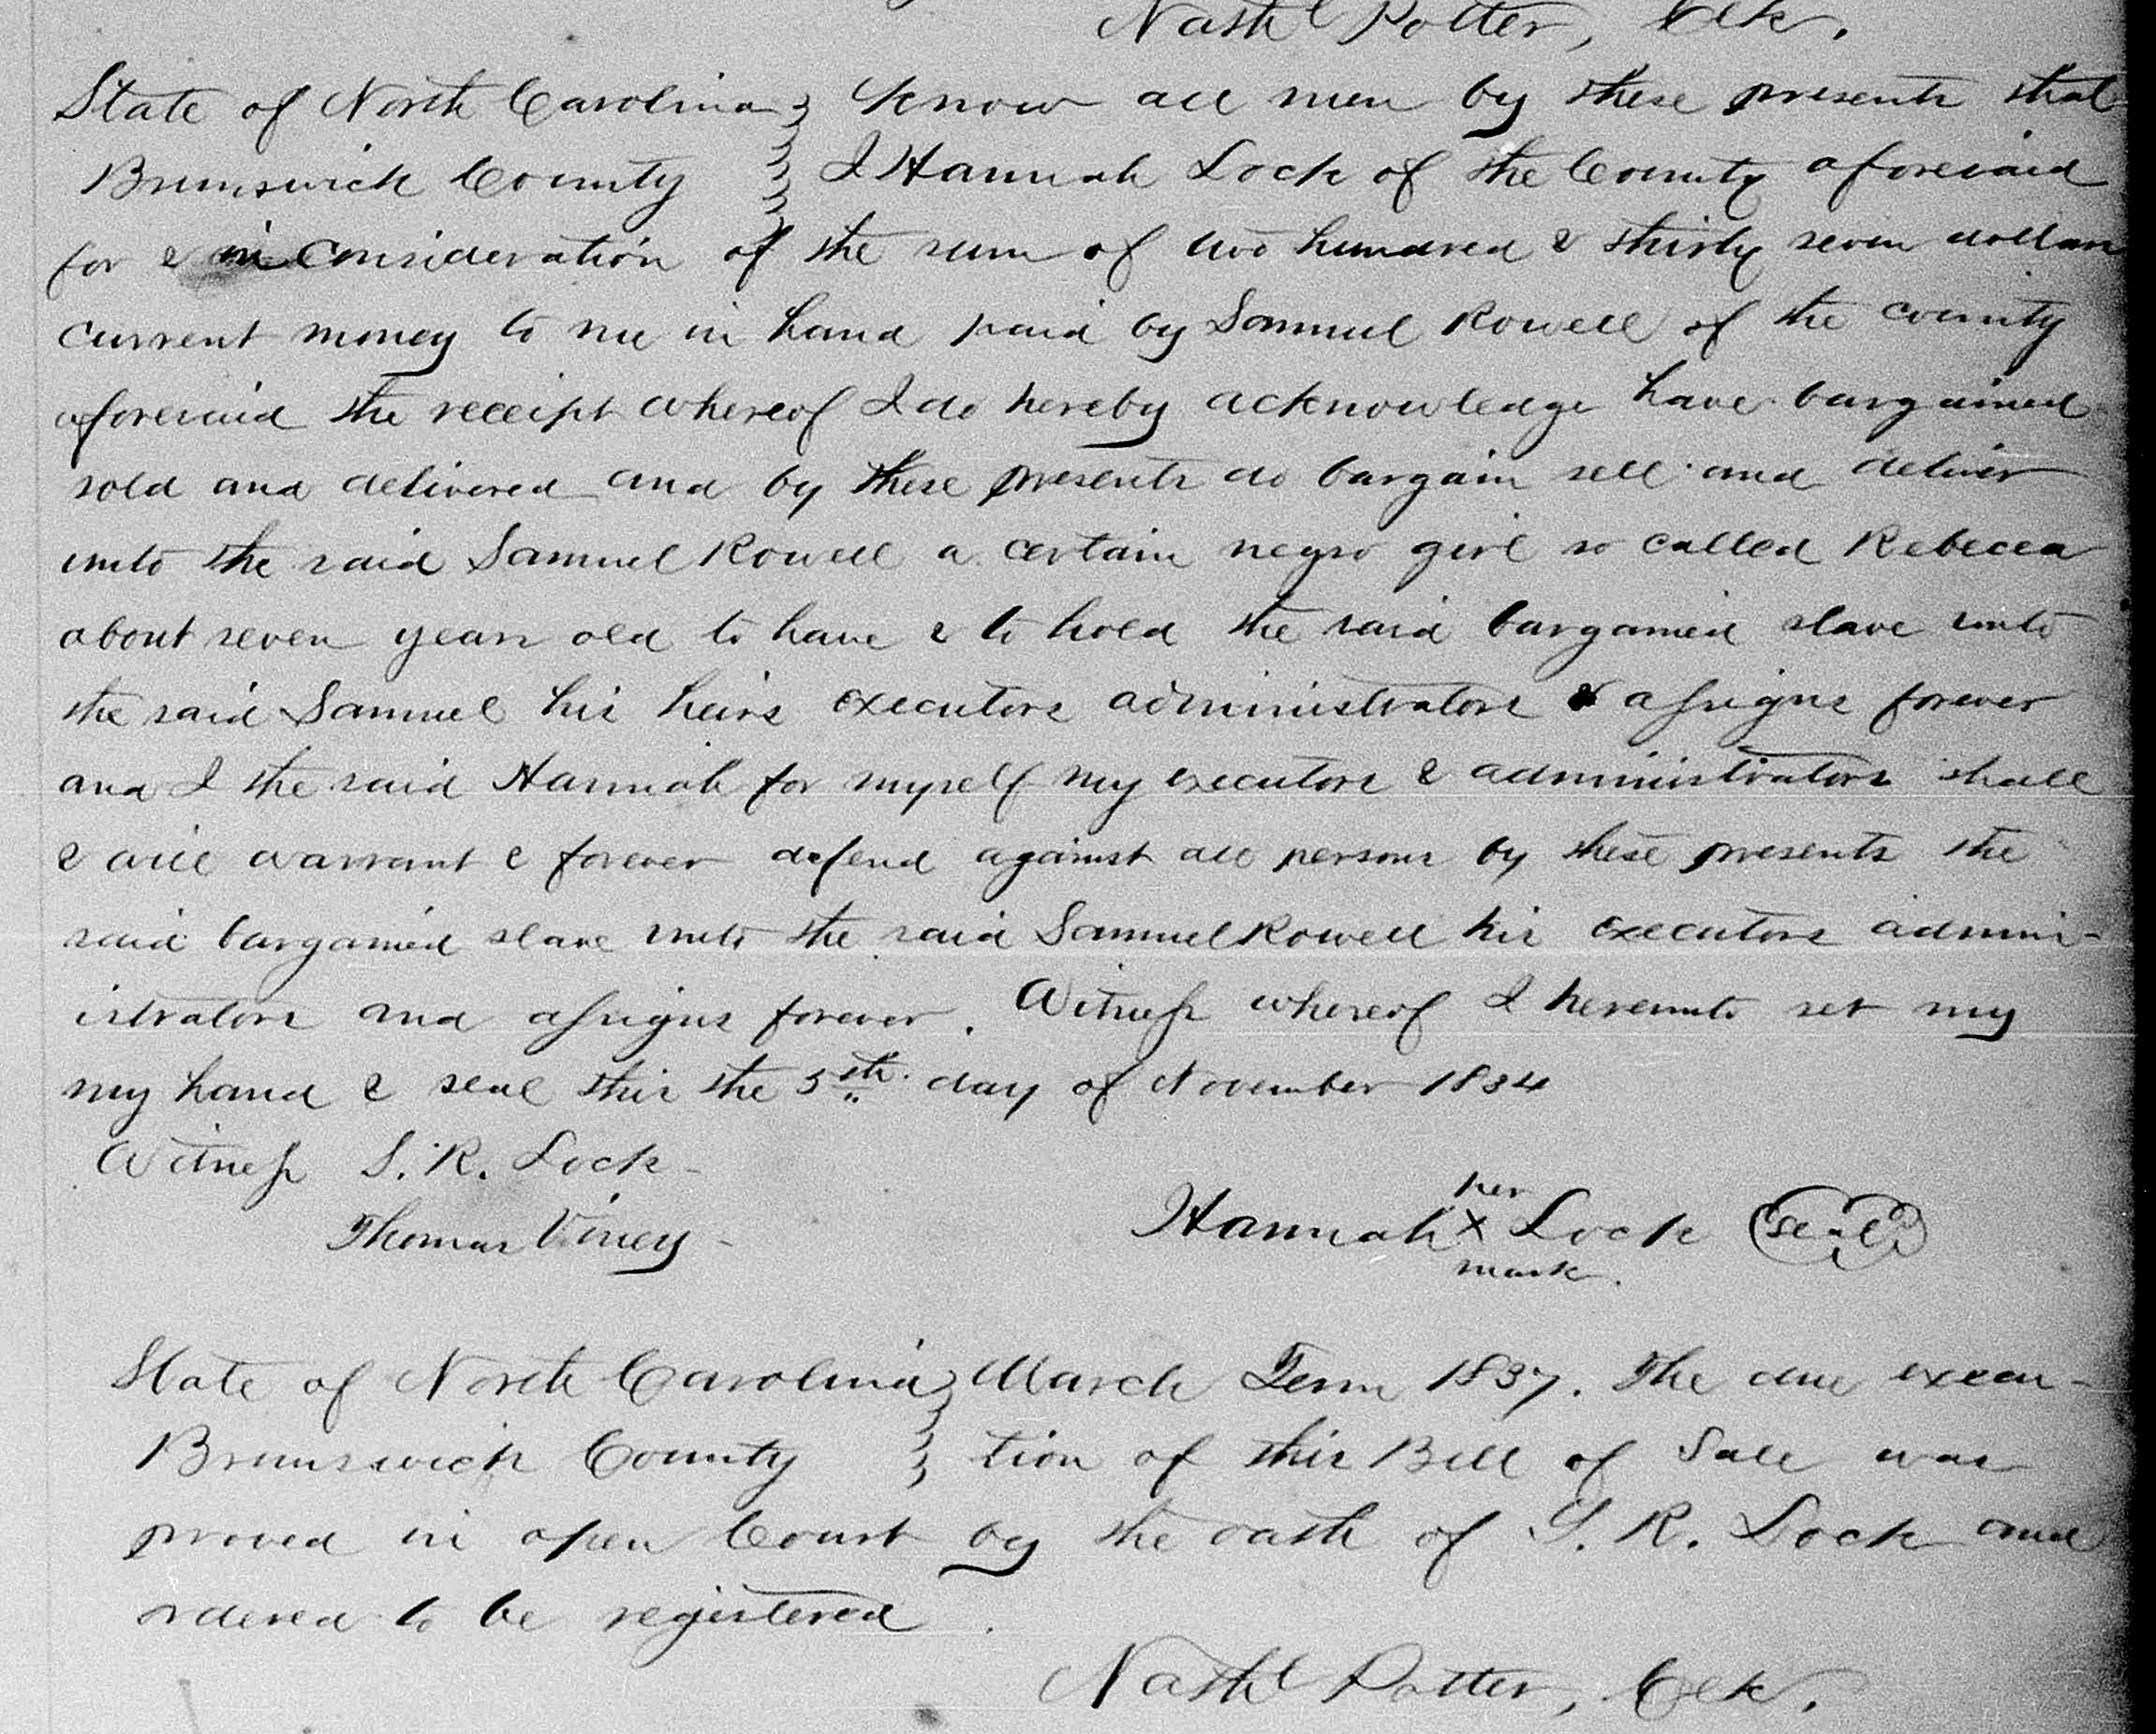 Nathl Potter, Clk.
State of North Carolina } Know all men by these presents that
Brunswick County } I Hannah Lock of the County aforesaid
for & in Consideration of the sum of two hundred & thirty seven dollars
current money to me in hand paid by Samuel Rowell of the county
aforesaid the receipt whereof I do hereby acknowledge have bargained
sold and delivered and by these presents do bargain sell and deliver
unto the said Samuel Rowell a certain negro girl so called Rebecca
about seven years old to have & to hold the said bargained slave unto
the said Samuel his heirs executors administrators & assigns forever
and I the said Hannah for myself my executors & administrators shall
& will warrant & forever defend against all persons by these presents the
said bargained slave unto the said Samuel Rowell his executors admin-
istrators and assigns forever. Witness whereof I hereunto set my
my hand & seal this the 5th day of November 1834
Witness S. R. Lock
Thomas Viney
her
Hannah X Lock (seal)
mark.
State of North Carolina } March Term 1837. The due execu-
Brunswick County } tion of this Bill of Sale was
proved in open Court by the oath of S. R. Lock and
ordered to be registered.
Nathl Potter, Clk.